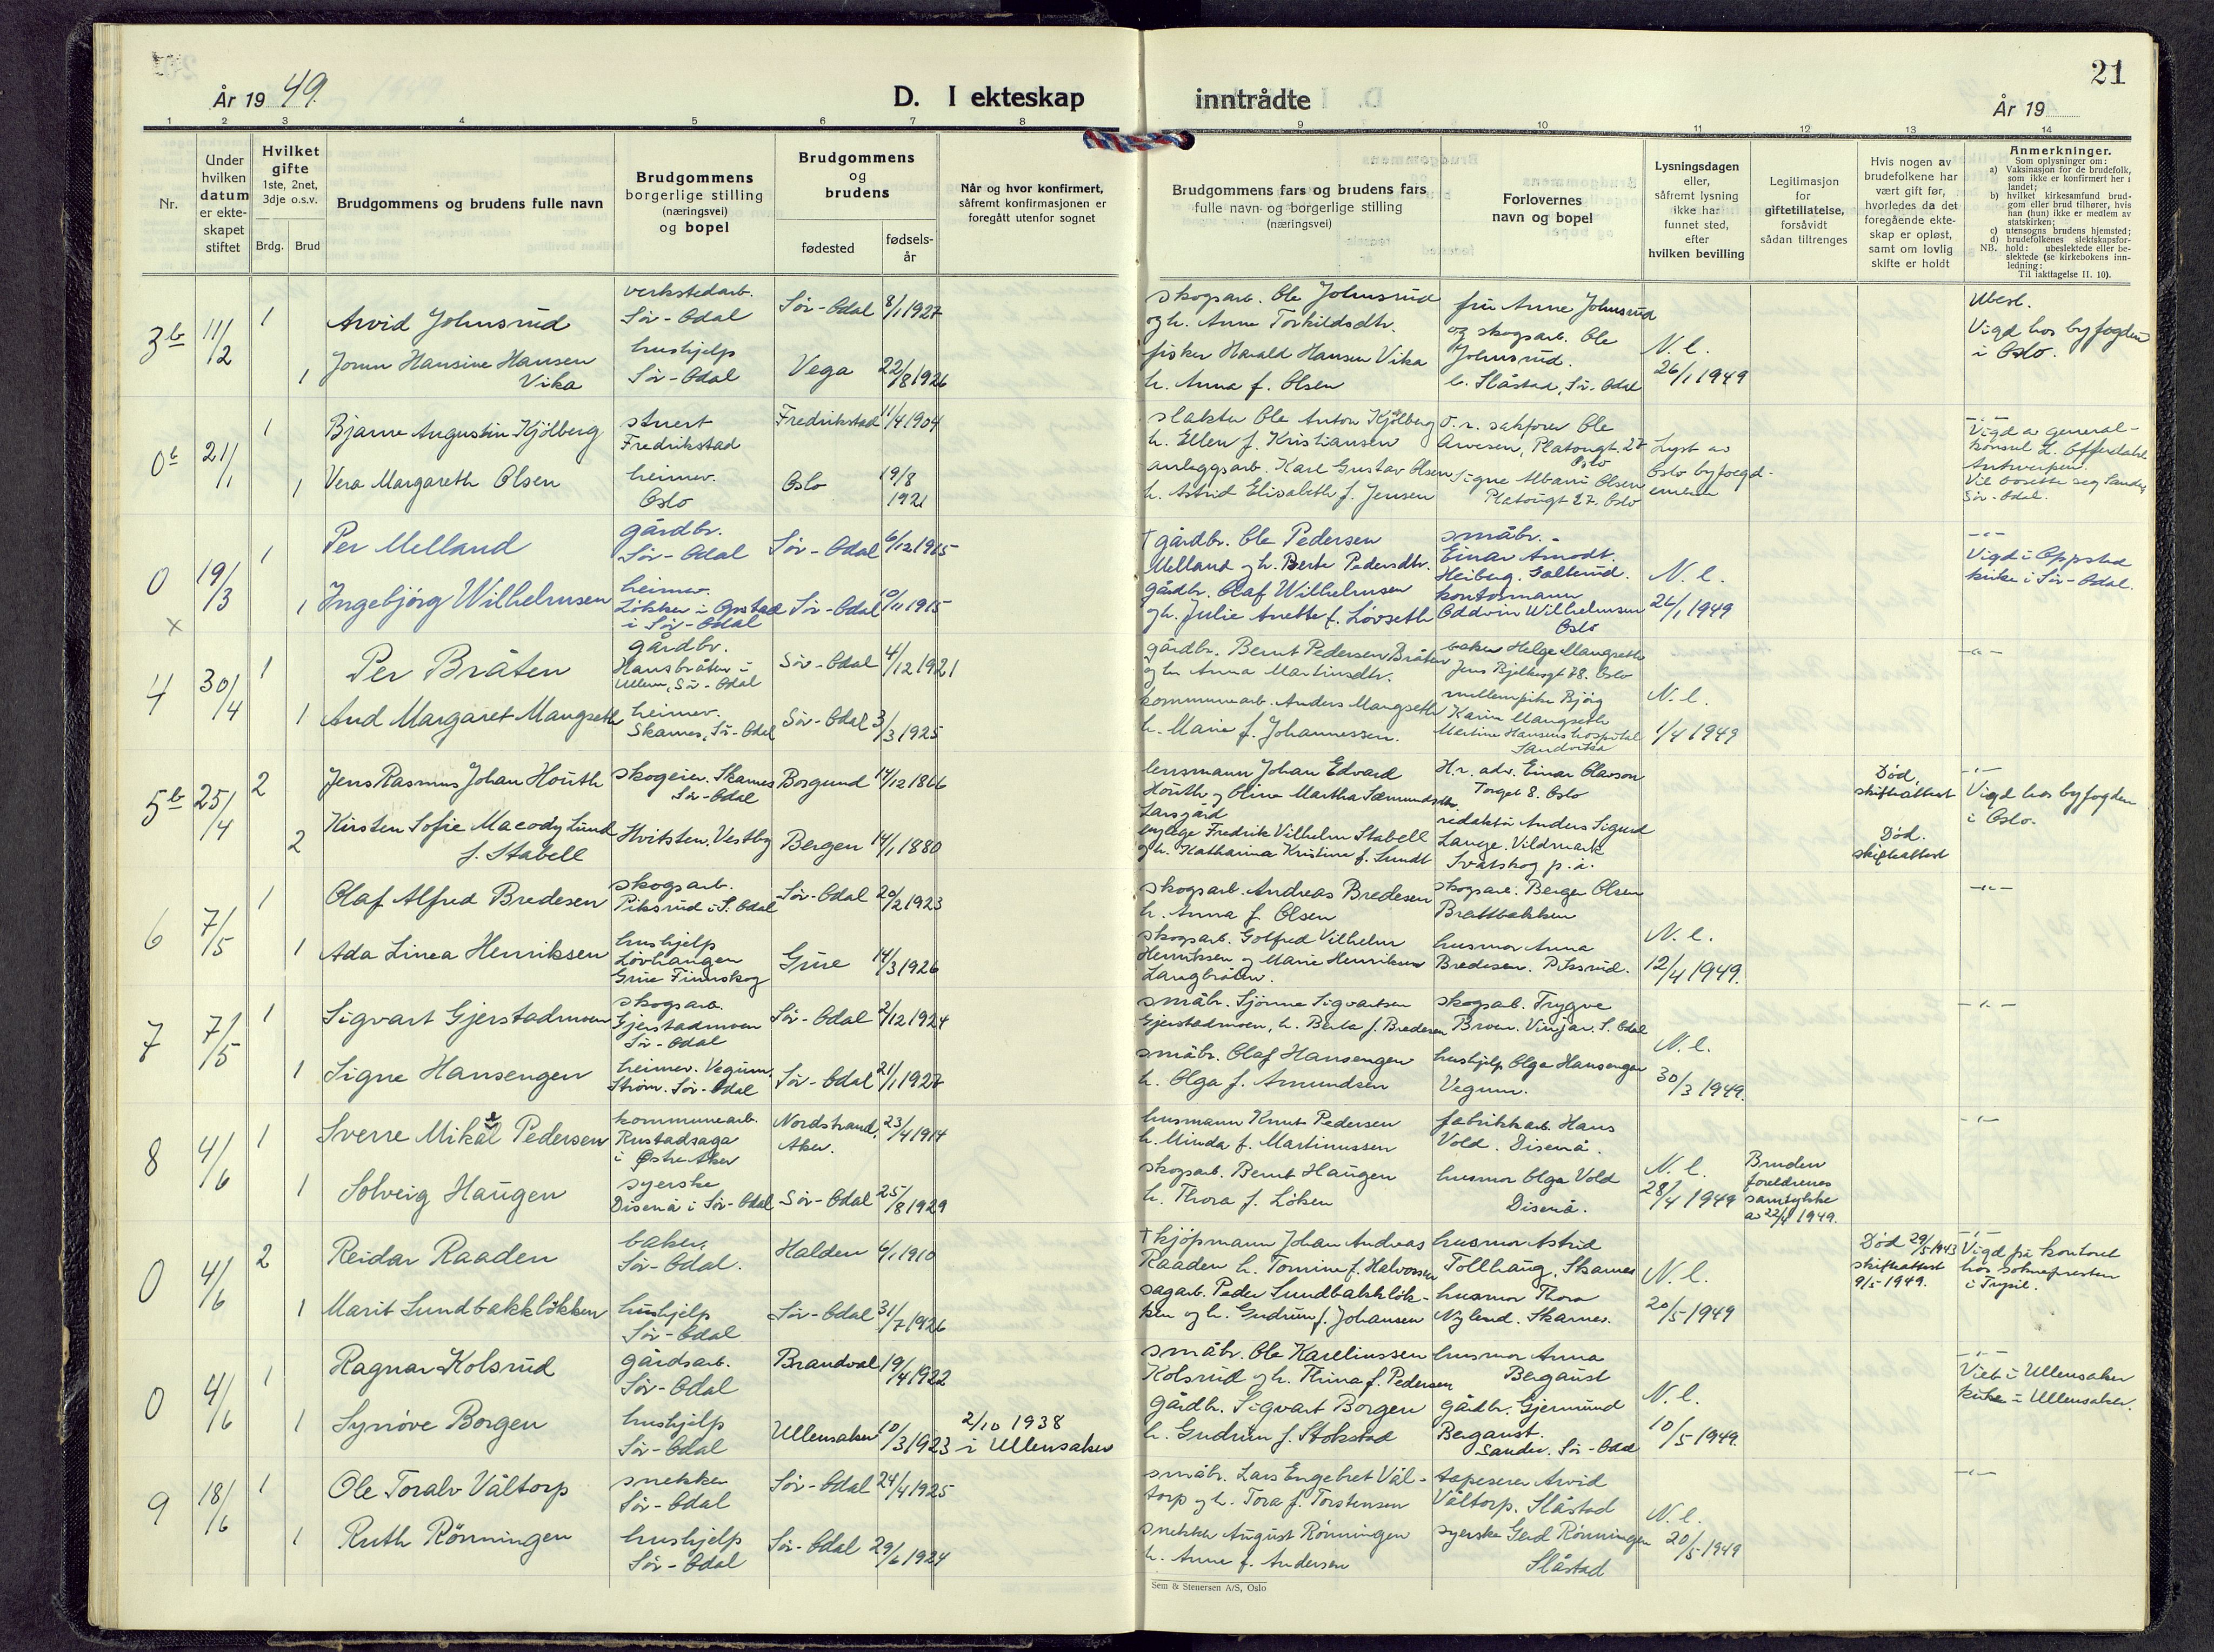 År 19 49.
D. I ekteskap
inntrådte
År 19
21
1 2 3 4 5 6 7 8 9 10 11 12 13 14
Nr.
Under hvilken datum er ekte-skapet stiftet
Hvilket gifte
1ste, 2net, 3dje o.s.v.
Brdg. Brud
Brudgommens og brudens fulle navn
Brudgommens borgerlige stilling (næringsvei) og bopel
Brudgommens og brudens
fødested
fødsels-år
Når og hvor konfirmert, såfremt konfirmasjonen er foregått utenfor sognet
Brudgommens fars og brudens fars fulle navn og borgerlige stilling (næringsvei)
Forlovernes navn og bopel
Lysningsdagen eller, såfremt lysning ikke har funnet sted, efter hvilken bevilling
Legitimasjon for giftetillatelse, forsåvidt sådan tiltrenges
Hvis nogen av brudefolkene har vært gift før, hvorledes da det foregående ekte-skap er opløst, samt om lovlig skifte er holdt
Anmerkninger.
Som oplysninger om:
a) Vaksinasjon for de brudefolk, som ikke er konfirmert her i landet;
b) hvilket kirkesamfund brud-gom eller brud tilhører, hvis han (hun) ikke er medlem av statskirken;
c) utensogns brudens hjemsted;
d) brudefolkenes slektskapsfor-hold: ubeslektede eller be-slektede (se kirkebokens inn-ledning:
NB.
Til iakttagelse II. 10).
3b 11/2 1 Arvid Johnsrud verkstedarb. Sør-Odal Sør-Odal 8/1 1927
1 Jorun Hansine Hansen Vika hushjelp Sør-Odal Vega 22/8 1926
skogsarb. Ole Johnsrud
og h. Anne Torkildsdtr.
fisker Harald Hansen Vika
h. Anna f. Olsen
fru Anne Johnsrud
og skogsarb. Ole
Johnsrud.
b. Slåstad, Sør-Odal
N.l.
26/1 1949
Ubesl.
Vigd hos byfogden
i Oslo.
0b 21/1 1 Bjarne Augustin Kjölberg stuert Fredrikstad Fredrikstad 11/4 1904
1 Vera Margareth Olsen heimev. Oslo Oslo 19/8 1921
slakter Ole Anton Kjölberg
h. Ellen f. Kristiansen
anleggsarb. Karl Gustav Olsen
h. Astrid Elisabeth f. Jensen
O.r. sakfører Ole
Arvesen, Platougt. 27
Oslo
Signe Albani Olsen
Platougt 27. Oslo
Lyst av
Oslo byfoegd-
embete
Vigd av general-
konsul L. Offerdahl
Antwerpen.
Vil bosette seg Sander
Sør-Odal.
0 19/3 1 Per Melland gårdbr. Sør-Odal Sør-Odal 6/12 1915
x
1 Ingebjörg Wilhelmsen heimev. Løkker i Opstad i Sør-Odal Sør-Odal 10/11 1915
† gårdbr. Ole Pedersen
Melland og h. Berte Pedersdtr.
gårdbr. Olaf Wilhelmsen
og h. Julie Anette f. Lövseth
småbr.-
Einar Arnodt.
Heiberg. Galterud.
kontormann
Oddvin Wilhelmsen
Oslo
N.l.
26/1 1949
-"-
Vigd i Oppstad
kirke i Sør-Odal.
4 30/4 1 Per Bråten gårdbr. Hansbråten i Ullern, Sør-Odal Sör-Odal 4/12 1921
1 Aud Margaret Mangseth heimev. Skarnes, Sør-Odal Sör-Odal 3/3 1925
gårdbr. Bernt Pedersen Bråten
og h. Anna Martinsdtr.
kommunearb. Anders Mangseth
h. Marie f. Johannessen.
baker Helge Mangseth
Jens Bjelkesgt 78. Oslo
Karin Mangseth
Martina Hansens hospital
Sandvika
N.l.
1/4 1949
-"-
5b 25/4 2 Jens Rasmus Johan Houth skogeier. Skarnes Sør-Odal Borgund 14/12 1866
2 Kirsten Sofie Macody Lund f. Stabell Hvitsten. Vestby Bergen 14/1 1880
lensmann Johan Edvard
Houth og Oline Martha Sæmundsdtr.
Larsgård
og h. Katharina Kristine f. Lundt
H.r. adv. Einar Olavson
Torget 8. Oslo
redaktör Anders Sigurd
Lange. Vildmark
Svartskog p. å.
Död,
skifteattest
Död.
skifteattest
-"-
Vigd hos byfogden
i Oslo.
6 7/5 1 Olaf Alfred Bredesen skogsarb. Piksrud i S. Odal Sör-Odal 20/2 1923
1 Ada Linea Henriksen hushjelp Lövhaugen Grue Finnskog Grue 14/3 1926
skogsarb. Andreas Bredesen
h. Anna f. Olsen
skogsarb. Golfred Vilhelm
Henriksen og Marie Henriksen
Langbråten.
skogsarb. Berger Olsen
Brattbakken
husmor Anna
Bredesen. Piksrud.
N.l.
12/4 1949.
-"-
7 7/5 1 Sigvart Gjerstadmoen skogsarb. Gjerstadmoen Sør-Odal Sör-Odal 2/12 1924
1 Signe Hansengen heimev. Vegum. Strøm. Sør-Odal Sör-Odal 21/1 1927
småbr. Sjönne Sigvartsen
Gjerstadmoen, h. Berta f. Bredesen
småbr. Olaf Hansengen
h. Olga f. Amundsen
skogsarb. Trygve
Broen. Vinjar. S. Odal
hushjelp Olga Hansengen
Vegum.
N.l.
30/3 1949.
-"-
8 4/6 1 Sverre Mikael Pedersen kommunearb. Rustadsaga i Østre Aker Nordstrand, Aker. 23/4 1914
1 Solveig Haugen syerske Disenå i Sør-Odal Sör-Odal 25/8 1929
husmann Knut Pedersen
h. Minda f. Martinussen
skogsarb. Bernt Haugen
h. Thora f. Löken
fabrikkarb. Hans
Vold. Disenå.
husmor Olga Vold
Disenå.
N.l.
28/4 1949
Bruden
foreldrenes
samtykke
av 22/4 1949.
-"-
0 4/6 2 Reidar Raaden baker. Sør-Odal. Halden 6/1 1910
1 Marit Sundbakklökken hushjelp Sør-Odal Sör-Odal 31/7 1926
† kjøpmann Johan Andreas
Raaden h. Tomine f. Halvorsen
sagarb. Peder Sundbakklök-
ken og h. Gudrun f. Johansen
husmor Astrid
Tollhaug, Skarnes
husmor Thora
Nylend. Skarnes.
N.l.
20/5 1949
Död 29/5 1943
skifteattest
9/5 1949.
-"-
Vigd på kontoret
hos sokneprsten
i Trysil.
0 4/6 1 Ragnar Kolsrud gårdsarb. Sør-Odal Brandval 19/4 1922
1 Synöve Borgen hushjelp Sør-Odal Ullensaker 10/3 1923 2/10 1938 i Ullensaker
småbr. Ole Kareliussen
Kolsrud og h. Thina f. Pedersen
gårdbr. Sigvart Borgen
h. Gudrun f. Stokstad
husmor Anna
Bergaust
gårdbr. Gjermund
Bergaust.
Sander. Sør-Odal
N.l.
10/5 1949.
-"-
Viet i Ullensaker
kirke i Ullensaker.
9 18/6 1 Ole Toralv Våltorp snekker Sør-Odal Sör-Odal 24/4 1925
1 Ruth Rönningen hushjelp Sør-Odal Sör-Odal 29/6 1924
småbr. Lars Engebret Vål-
torp og h. Tora f. Torstensen
snekker August Rönningen
h. Anne f. Andersen
tapeserer Arvid
Våltorp. Slåstad
syerske Gerd Rönningen
Slåstad
N.l.
20/5 1949
-"-
Sem & Stenersen A/S, Oslo